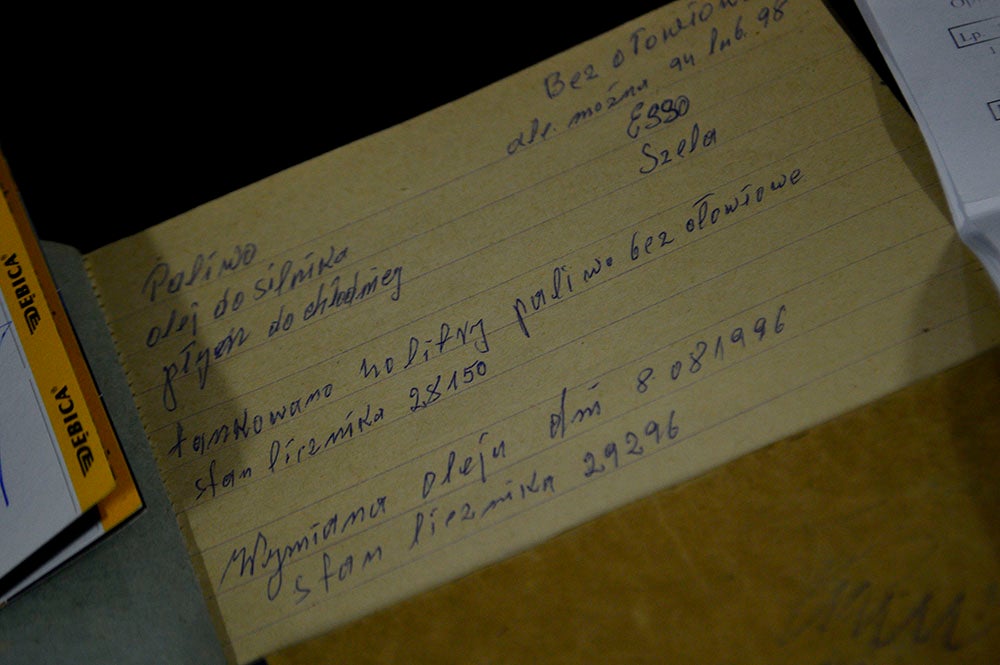 Bez ołowiow
ale. można 94 lub. 98
ESSO
Szela
Paliwo
olej do silnika
płyn do chłodnicy
tankowano 40 litry paliwo bez ołowiowe
stan licznika 28150
Wymiana oleju dni 8 081996
stan licznika 29296
DĘBICA
DĘBICA
Lp.
1